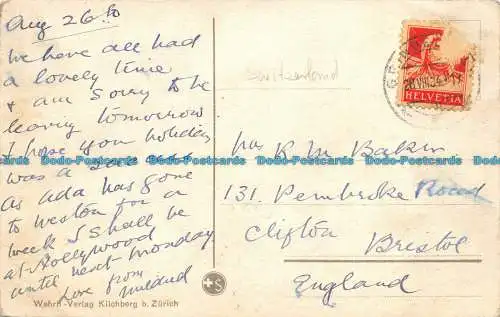 Aug 26th
We have all had
a lovely time
& am sorry to be
leaving tomorrow
I hope your holiday
was a
as Ada has gone
to Weston for a
week I shall be
at Hollywood
until next Monday
Love from
Mildred
Wehrli-Verlag Kilchberg b. Zürich
Switzerland
HELVETIA
Mrs K. M. Baker
131. Pembroke Road
Clifton
Bristol
England
Dodo-Postcards Dodo-Postcards Dodo-Postcards Dodo-Postcards Dodo-Postcards